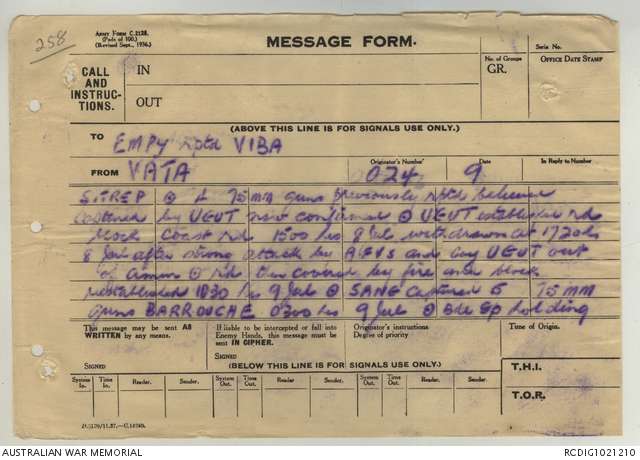 258
Army Form C.2128.
(Pads of 100.)
(Revised Sept., 1936.)
MESSAGE FORM.
Serial No.
CALL
AND
INSTRUC-
TIONS.
IN
OUT
No. of Groups
GR.
OFFICE DATE STAMP
(ABOVE THIS LINE IS FOR SIGNALS USE ONLY.)
TO EMPY Rptd VIBA
FROM VATA
Originator's Number
024
Date
9
In Reply to Number
SITREP 4 75 MM guns previously rptd believed
captured by UGUT now confirmed UGUT established rd
block Coast Rd 1500 hrs 8 Jul withdrawn at 1720 hrs
8 Jul after strong attack by AFVs and coy UGUT out
of ammn Rd then covered by fire and block
reestablished 1030 hrs 9 Jul SANG captured 5 75 MM
guns BARROUCHE 0300 hrs 9 Jul Bde Gp holding
This message may be sent AS
WRITTEN by any means.
If liable to be intercepted or fall into
Enemy Hands, this message must be
sent IN CIPHER.
Originator's instructions
Degree of priority
Time of Origin.
SIGNED
SIGNED
(BELOW THIS LINE IS FOR SIGNALS USE ONLY.)
T.H.I.
System In.
Time In.
Reader.
Sender.
System Out.
Time Out.
Reader.
Sender.
System Out.
Time Out.
Reader.
Sender.
T.O.R.
AUSTRALIAN WAR MEMORIAL
RCDIG1021210